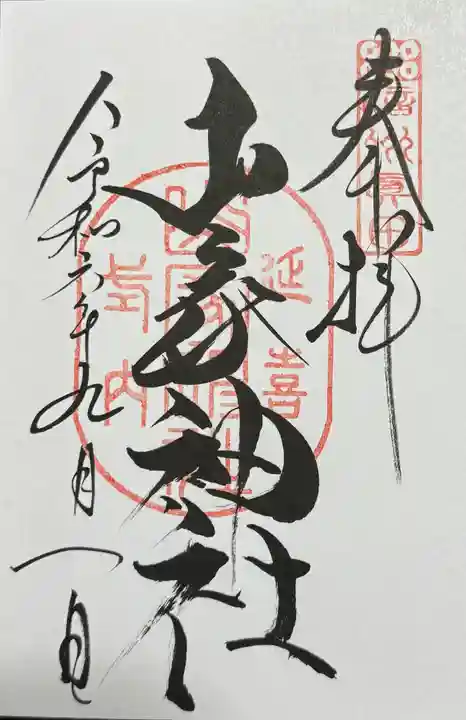 奉拝
信州真田
山家神社
延喜
山家神社
式内
令和六年九月一日